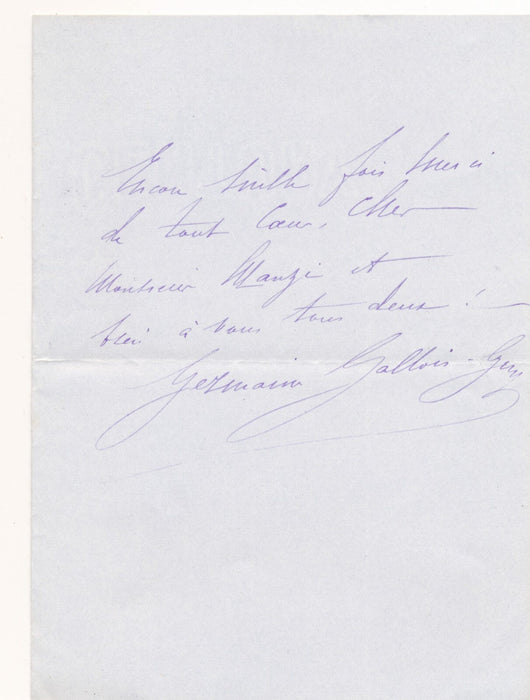 Encore mille fois merci
de tout cœur, cher
Monsieur Manzi et
bien à vous tous deux !
Germaine Gallois